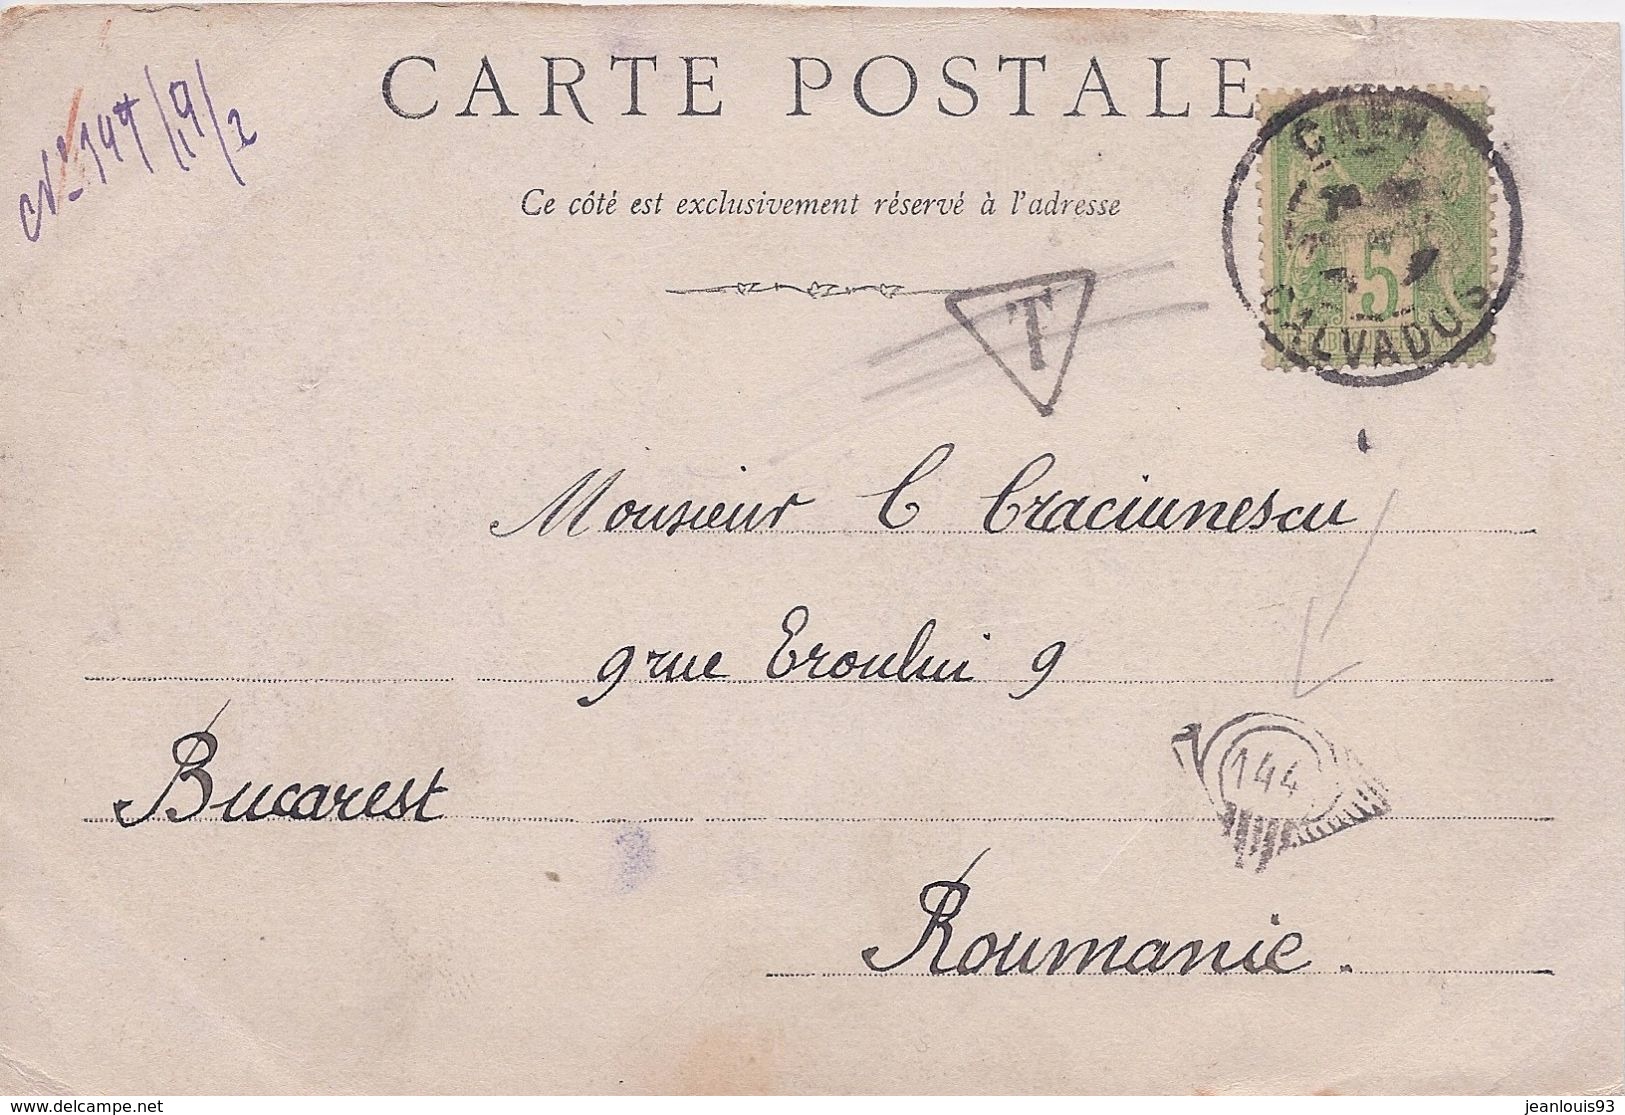 No 147/19/2
CARTE POSTALE
Ce côté est exclusivement réservé à l'adresse
CAEN
5
CALVADOS
T
Monsieur C Craciunescu
9 rue Eroului 9
144
Bucarest
Roumanie.
delcampe.net
jeanlouis93